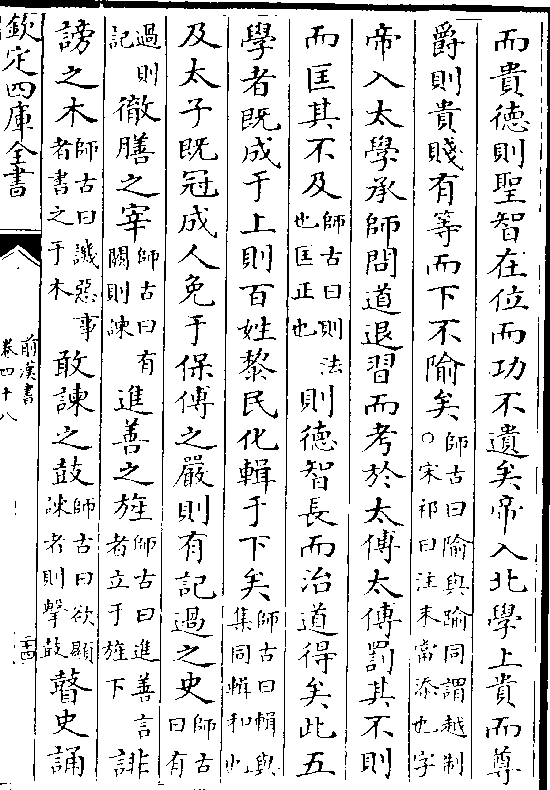 而貴徳則聖智在位而功不遺矣帝入北學上貴而尊
爵則貴賤有等而下不隃矣師古曰隃與踰同謂越制○宋祁曰注末當添也字
帝入太學承師問道退習而考於太傅太傅罰其不則
而匡其不及師古曰則法也匡正也則徳智長而治道得矣此五
學者既成于上則百姓黎民化輯于下矣師古曰輯與集同輯和也
及太子既冠成人免于保傅之嚴則有記過之史師古曰有
過則記徹膳之宰師古曰有闕則諫進善之旌師古曰進善言者立于旌下誹
謗之木師古曰譏惡事者書之于木敢諫之鼓師古曰欲顯諫者則擊鼓瞽史誦
欽定四庫全書
前漢書
卷四十八
二十四